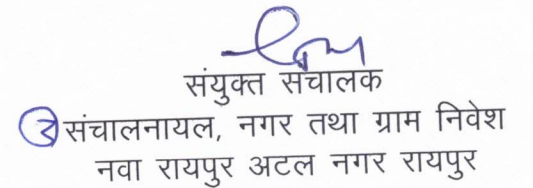 संयुक्त संचालक
संचालनायल, नगर तथा ग्राम निवेश
नवा रायपुर अटल नगर रायपुर